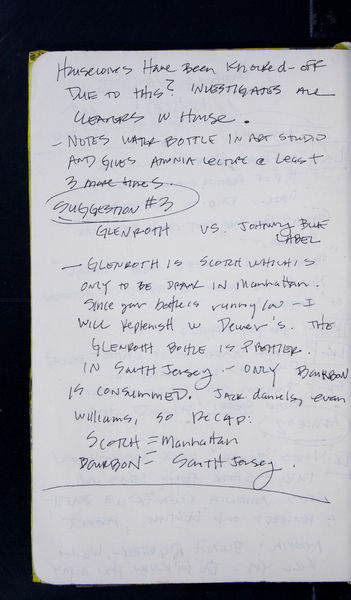 Housewives Have Been Knocked-off
Due to this? Investigates all
cleaners in House.
- Notes water bottle in art studio
and gives Amnia lecture @ least
3 more times.
Suggestion #3
Glenroth vs. Johnny Blue
Label
- Glenroth is Scotch which is
only to be drank in Manhattan.
Since your bottle is running low - I
will replenish w Dewer's. The
Glenroth Bottle is prettier.
In South Jersey - only Bourbon
is consumed. Jack Daniels, evan
Williams, so recap:
Scotch = Manhattan
Bourbon = South Jersey.